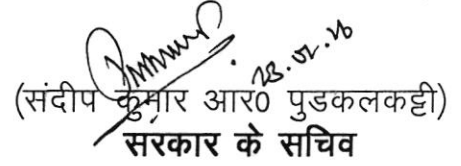 (संदीप कुमार आर0 पुडकलकट्टी)
सरकार के सचिव